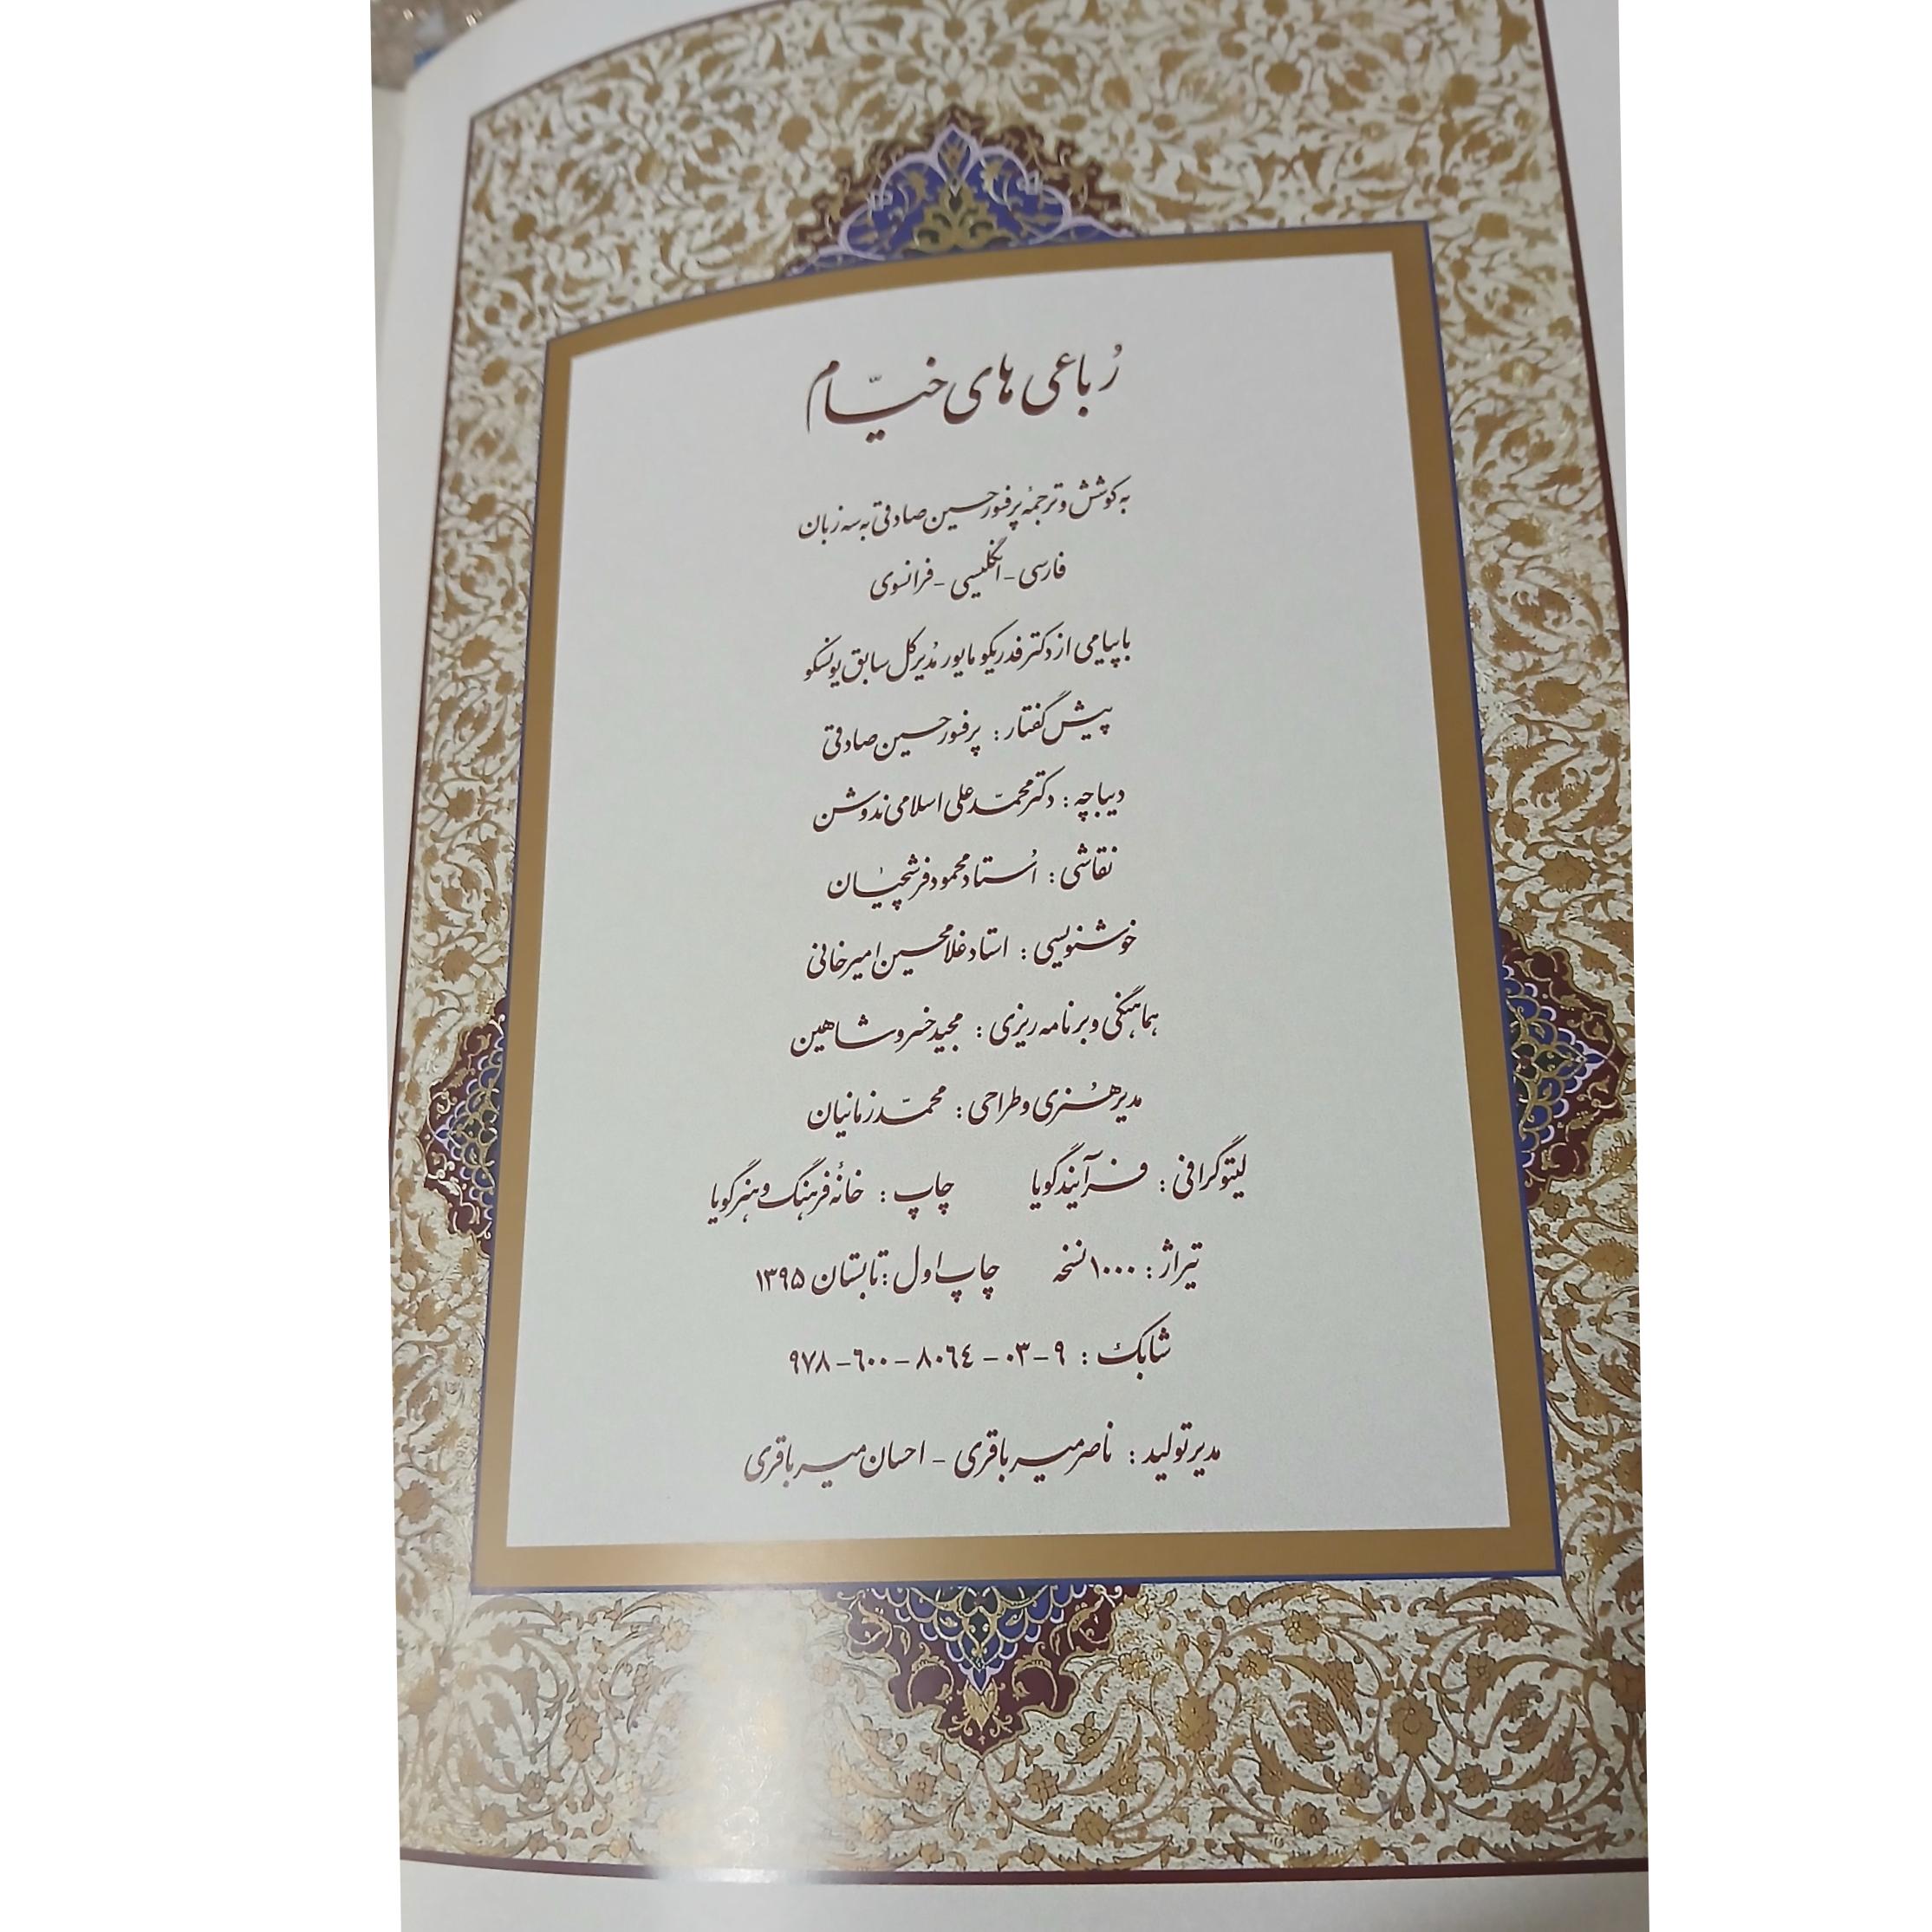 رُباعی های خیّام
به کوشش و ترجمهٔ پرفسور حسین صادقی به سه زبان
فارسی - انگلیسی - فرانسوی
با پیامی از دکتر فدریکو مایور مُدیر کل سابق یونسکو
پیش گفتار : پرفسور حسین صادقی
دیباچه : دکتر محمّد علی اسلامی ندوشن
نقاشی : اُستاد محمود فرشچیان
خوشنویسی : استاد غلامحسین امیرخانی
هماهنگی و برنامه ریزی : مجید خسروشاهین
مدیر هُنری و طراحی : محمّد زمانیان
لیتوگرافی : فرآیند گویا چاپ : خانهٔ فرهنگ و هنر گویا
تیراژ : ۱۰۰۰ نسخه چاپ اول : تابستان ۱۳۹۵
شابک : ۹ - ۰۳ - ۸۰٦٤ - ٦۰۰ - ۹۷۸
مدیر تولید : ناصر میرباقری - احسان میرباقری